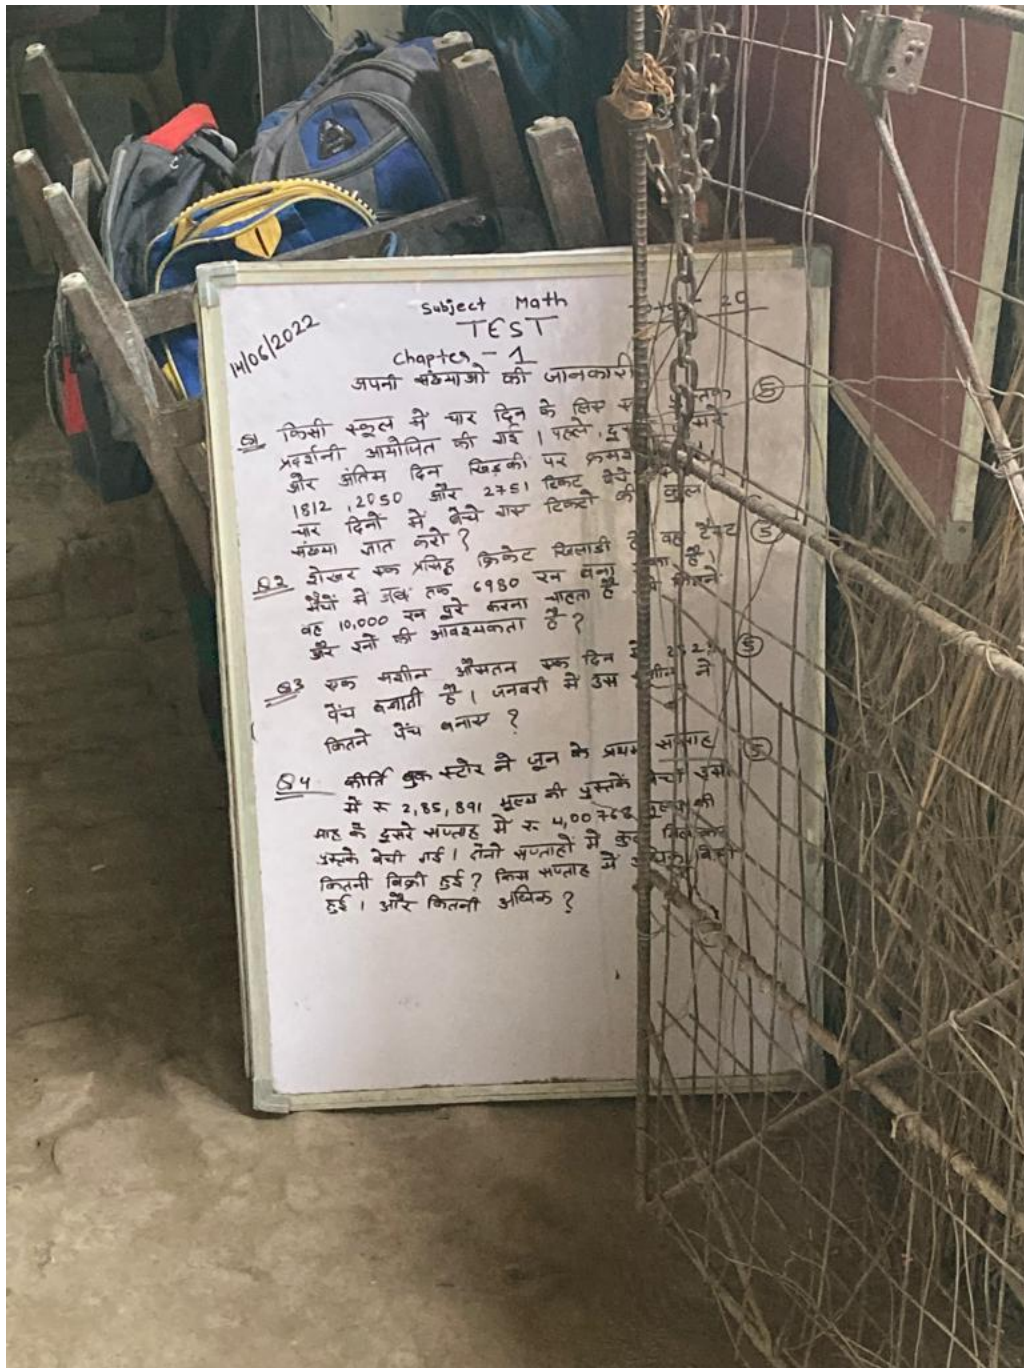 14/06/2022
Subject Math
20
TEST
Chapter - 1
अपनी संख्याओ की जानकारी
Q1 किसी स्कूल में चार दिन के लिए 5
प्रदर्शनी आयोजित की गई । पहले,
और अंतिम दिन खिड़की पर
1812, 2050 और 2751 टिकट बेचे
चार दिनों में बेचे गए टिकटो की कुल
संख्या ज्ञात करो ?
Q2 शेखर एक प्रसिद्ध क्रिकेट खिलाडी है वह टैस्ट 5
मैचों में अब तक 6980 रन बना है।
वह 10,000 रन पूरे करना चाहता है
और रनो की आवश्यकता है ?
Q3 एक मशीन औसतन एक दिन 5
पेंच बनाती है । जनवरी में उस मशीन ने
कितने पेंच बनाए ?
Q4 कीर्ति बुक स्टोर ने जून के प्रथम सप्ताह 5
में रु 2,85,891 मूल्य की पुस्तकें बेची
माह के दूसरे सप्ताह में रु 4,00768 मूल्य की
पुस्तके बेची गई । दोनो सप्ताहो में
कितनी बिक्री हुई ? किस सप्ताह में बिक्री
हुई । और कितनी अधिक ?